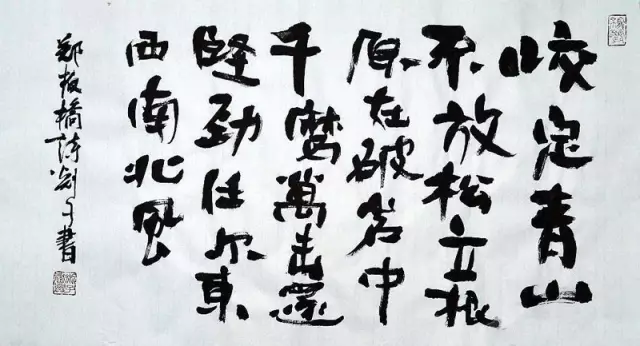 咬定青山
不放松立根
原在破岩中
千磨萬击還
坚劲任尔東
西南北風
郑板橋詩 書